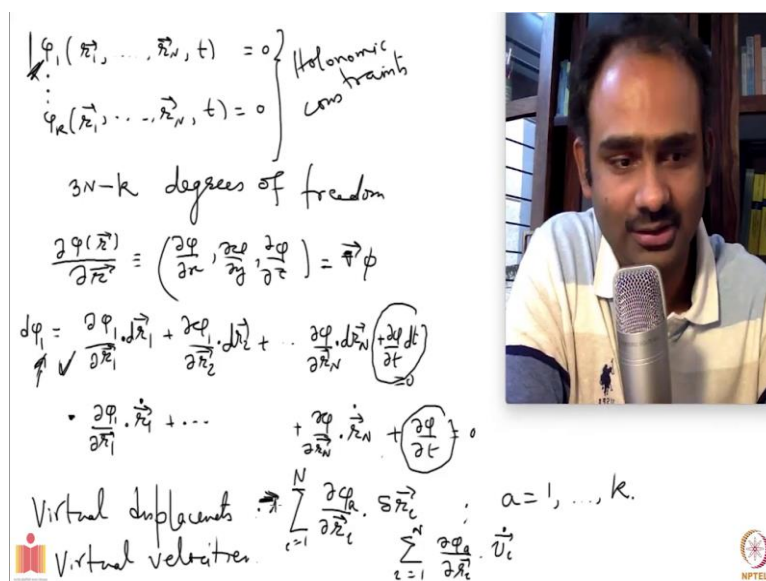 φ₁(r⃗₁, ..., r⃗_N, t) = 0
⋮
φ_k(r⃗₁, ..., r⃗_N, t) = 0
Holonomic
constraints
3N-k degrees of freedom
∂φ(r⃗)/∂r⃗ ≡ (∂φ/∂x, ∂φ/∂y, ∂φ/∂z) = ∇⃗φ
dφ₁ = ∂φ₁/∂r⃗₁ · dr⃗₁ + ∂φ₁/∂r⃗₂ · dr⃗₂ + ·· ∂φ/∂r⃗_N · dr⃗_N + ∂φ/∂t dt = 0
• ∂φ₁/∂r⃗₁ · ṙ⃗₁ + ··· + ∂φ/∂r⃗_N · ṙ⃗_N + ∂φ/∂t = 0
Virtual displacents ∑_{i=1}^{N} ∂φ_a/∂r⃗_i · δr⃗_i ; a = 1, ..., k.
Virtual velocities ∑_{i=1}^{N} ∂φ_a/∂r⃗_i · v̇⃗_i
NPTEL